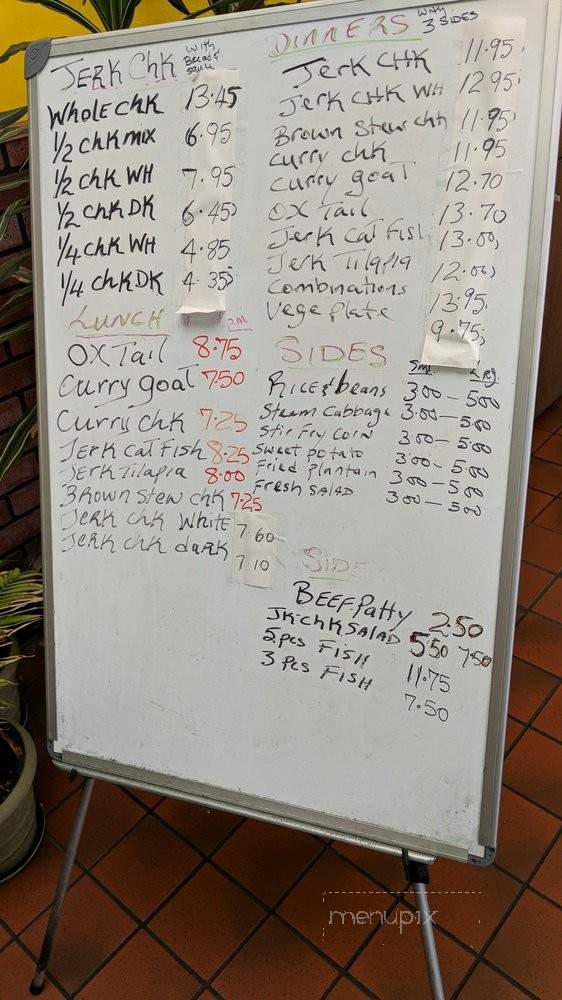 JERK CHK with Bread &
Whole chk 13.45
1/2 chk mix 6.95
1/2 chk WH 7.95
1/2 chk DK 6.45
1/4 chk WH 4.85
1/4 chk DK 4.35
LUNCH
OX Tail 8.75
Curry goat 7.50
Curry chk 7.25
Jerk Cat Fish 8.25
Jerk Tilapia 8.00
Brown Stew chk 7.25
Jerk chk White 7 60
Jerk chk dark 7 10
DINNERS with 3 SIDES
Jerk CHK 11.95
Jerk CHK WH 12.95
Brown Stew chk 11.95
Curry chk 11.95
Curry goat 12.70
OX Tail 13.70
Jerk Cat Fish 13.00
Jerk Tilapia 12.00
Combinations 13.95
Vege plate 9.75
SIDES Sml. Lrg.
Rice & beans 3.00 - 5.00
Steam Cabbage 3.00 - 5.00
Stir Fry Corn 3.00 - 5.00
Sweet Potato 3.00 - 5.00
Fried Plantain 3.00 - 5.00
Fresh SALAD 3.00 - 5.00
SIDE
BEEF Patty 2.50
JK-CHK SALAD 5.50 7.50
5 pcs FISH 11.75
3 pcs FISH 7.50
menupix